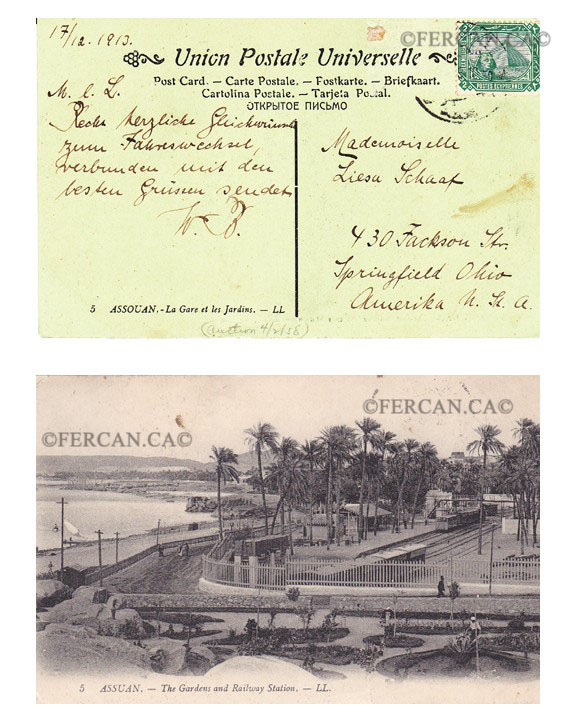 17/12. 1913.
©FERCAN.CA©
Union Postale Universelle
Post Card. — Carte Postale. — Postkarte. — Briefkaart.
Cartolina Postale. — Tarjeta Postal.
ОТКРЫТОЕ ПИСЬМО
M. l. L.
Recht herzliche Glückwünsche
zum Jahreswechsel,
verbunden mit den
besten Grüssen sendet
W. B.
Mademoiselle
Liesa Schaaf
430 Jackson Str.
Springfield Ohio
Amerika U. St. A.
5 ASSOUAN. - La Gare et les Jardins. — LL
©FERCAN.CA©
©FERCAN.CA©
5 ASSUAN. — The Gardens and Railway Station. — LL.